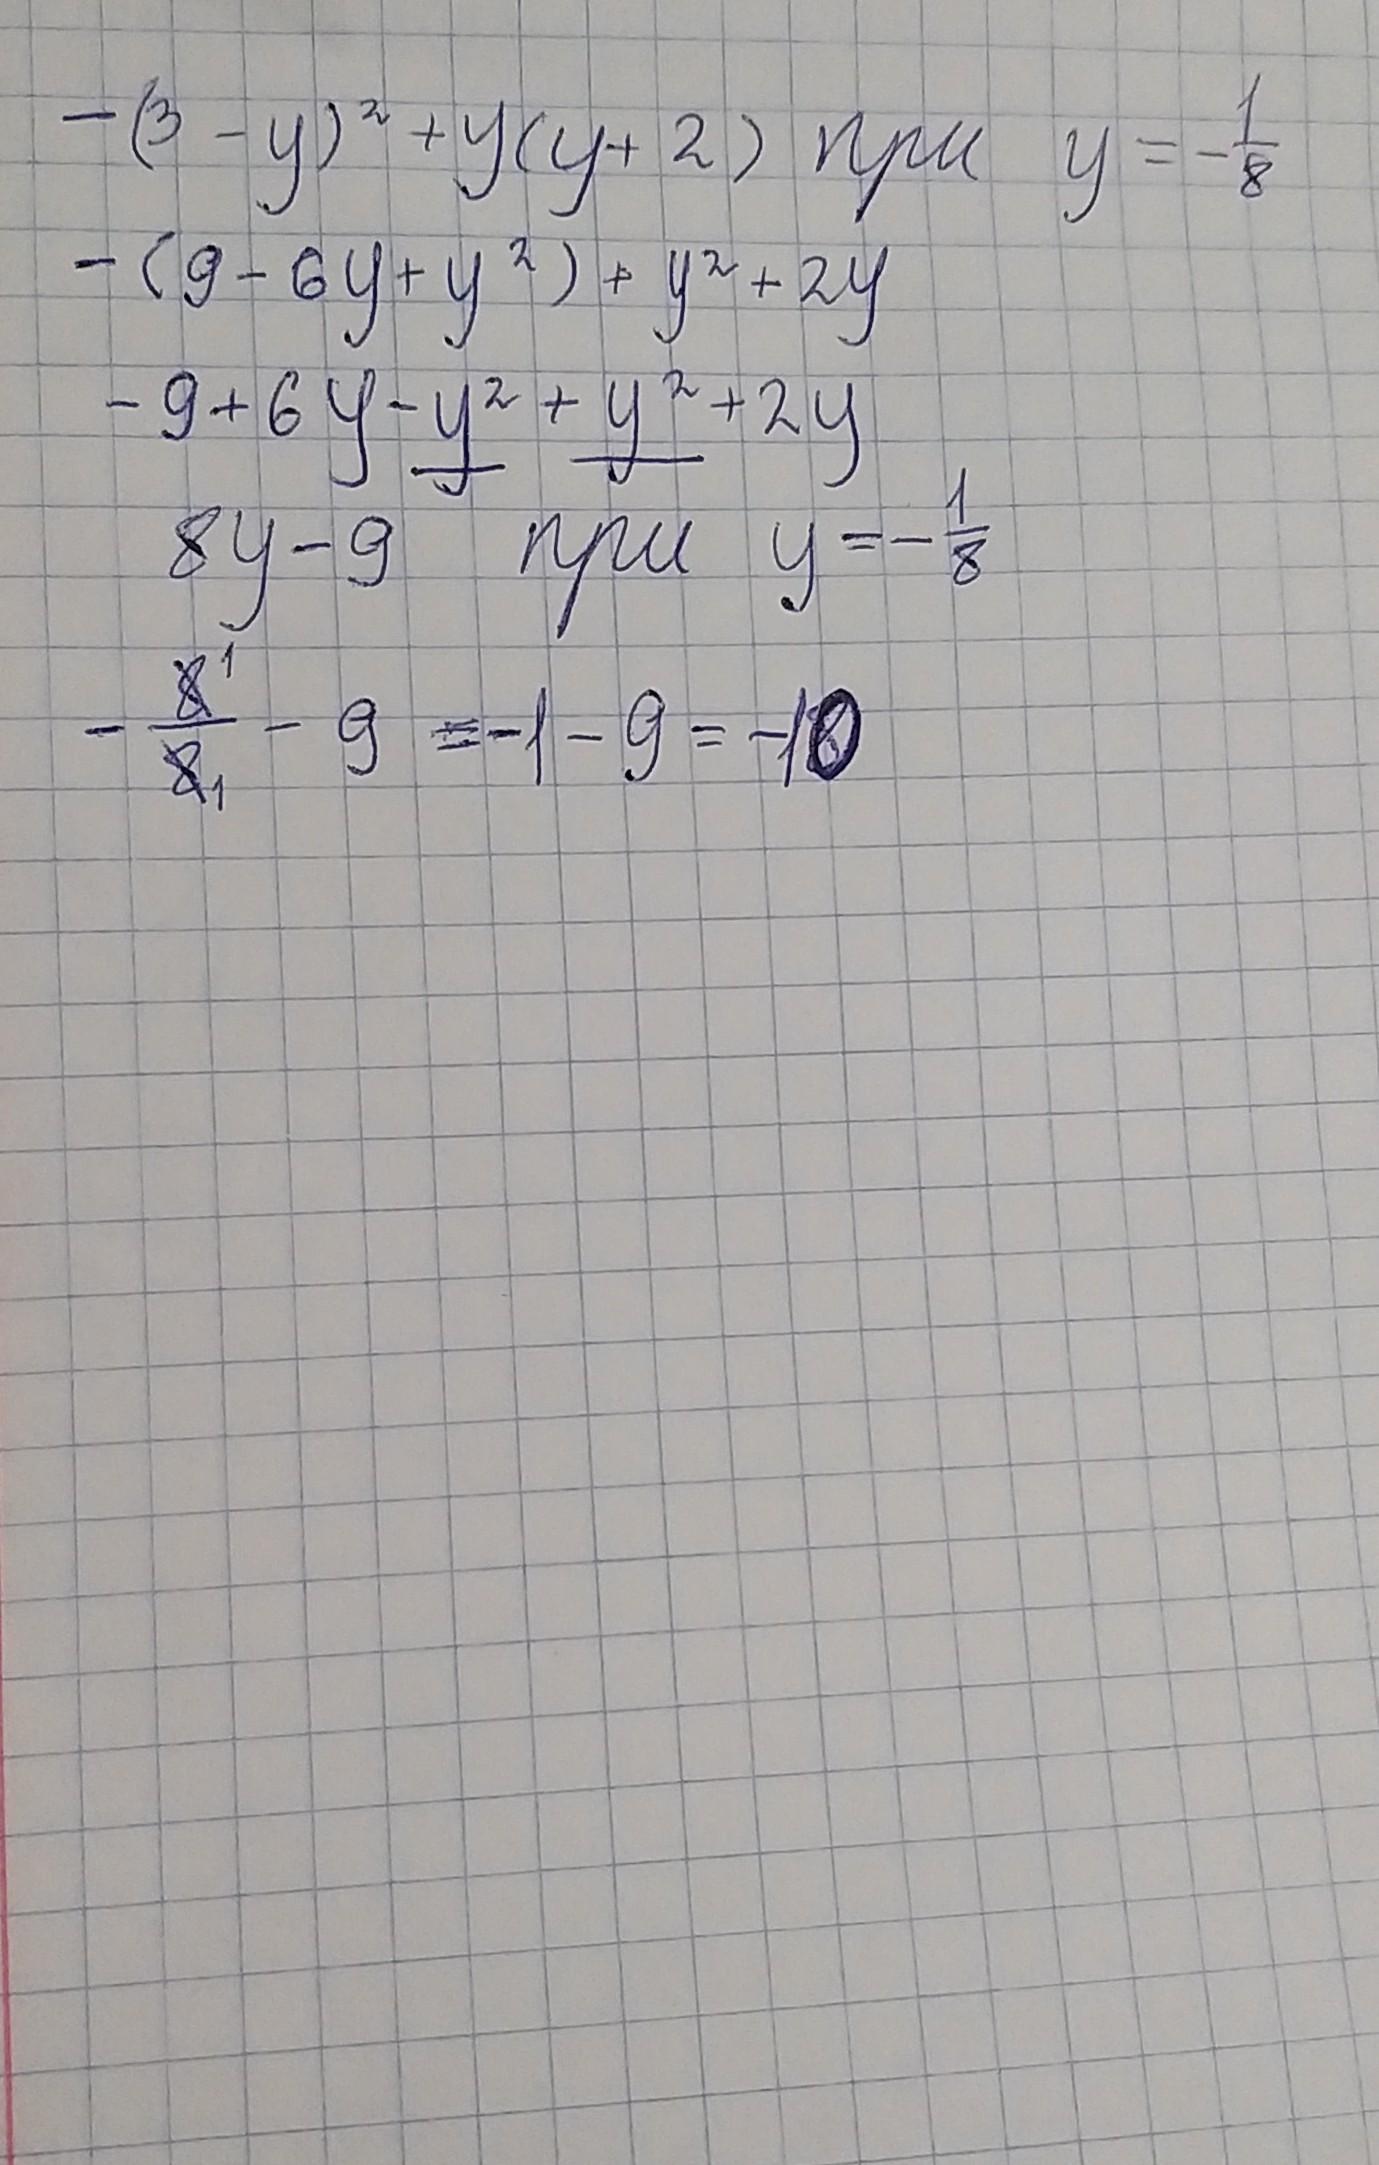 -(3-y)² + y(y+2) при y = -1/8
-(9-6y+y²) + y² + 2y
-9+6y-y² + y² + 2y
8y-9 при y = -1/8
-8¹/8₁ - 9 = -1 - 9 = -10